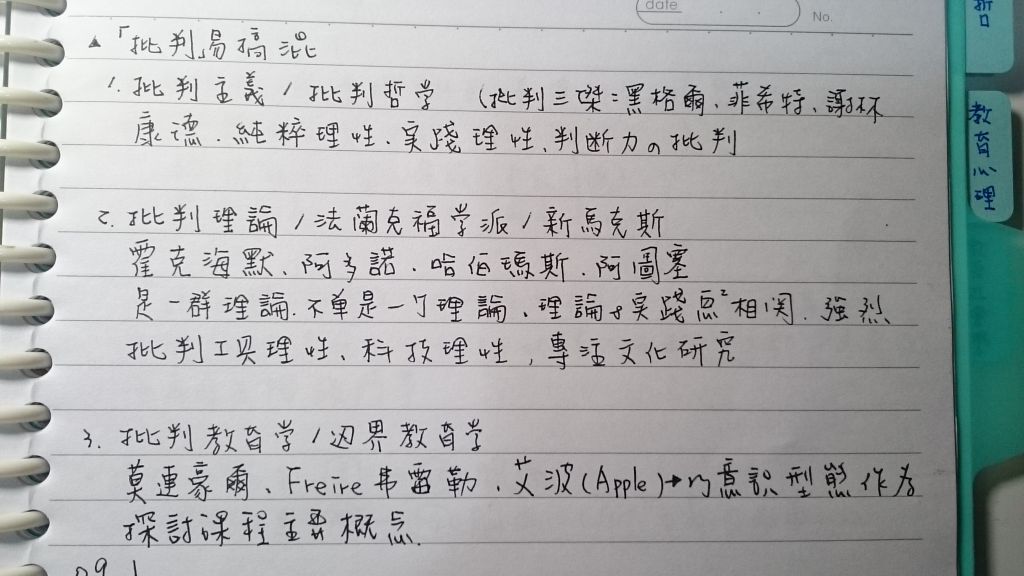 date
No.
▲「批判」易搞混
1. 批判主義 / 批判哲学 (批判三傑:黑格爾、菲希特、謝林
康德. 純粹理性、実踐理性、判断力の批判
2. 批判理論 / 法蘭克福学派 / 新馬克斯
霍克海默、阿多諾、哈伯瑪斯、阿圖塞
是一群理論. 不单是一个理論、理論&実踐息²相関. 強烈
批判工具理性、科技理性, 專注文化研究
3. 批判教育学 / 边界教育学
莫連豪爾、Freire弗雷勒、艾波(Apple)→以意識型態作為
探討課程主要概念.
哲
教育心理